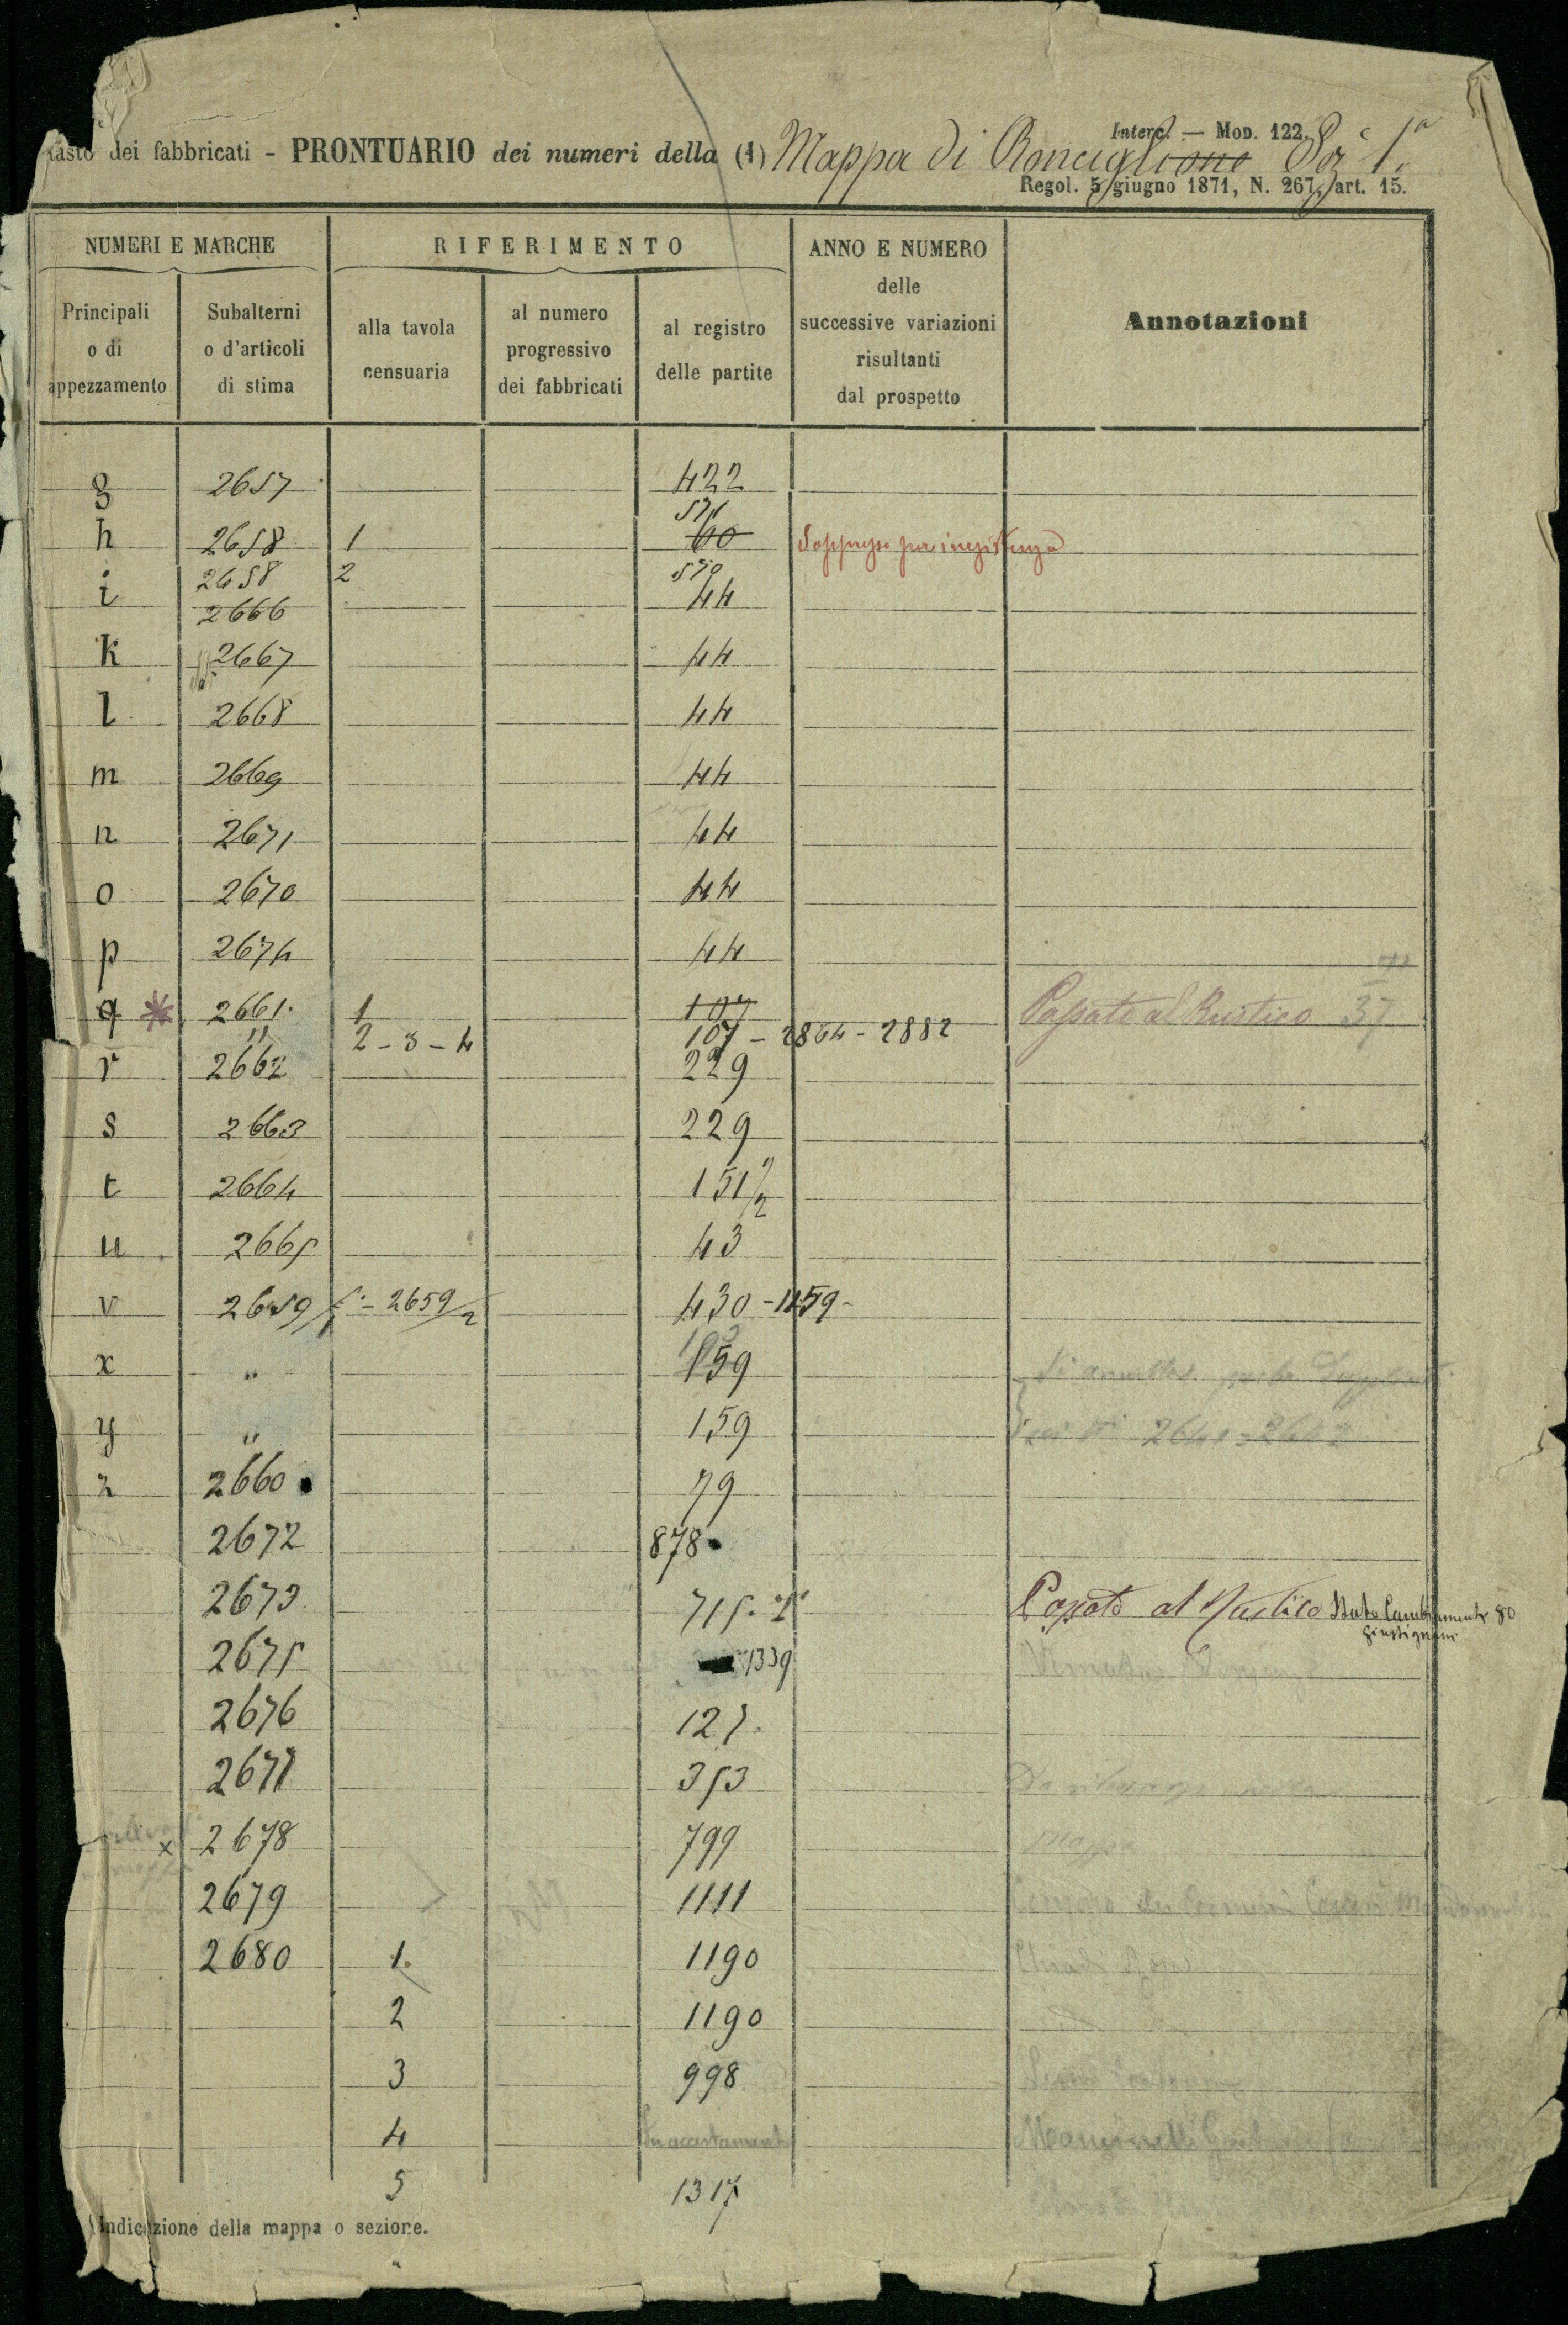 Interc. — Mod. 122.
tasto dei fabbricati - PRONTUARIO dei numeri della (1) Mappa di Ronciglione Sez. 1ª
Regol. 5 giugno 1871, N. 267, art. 15.
NUMERI E MARCHE RIFERIMENTO ANNO E NUMERO delle successive variazioni risultanti dal prospetto Annotazioni
Principali o di appezzamento Subalterni o d'articoli di stima alla tavola censuaria al numero progressivo dei fabbricati al registro delle partite
g 2657 422
h 2658 1 60 Soppresso per inesistenza
2658 2 570
i 2666 44
k 2667 44
l 2668 44
m 2669 44
n 2671 44
o 2670 44
p 2674 44
q * 2661 1 107 Passato al Rustico 37
" 2-3-4 107 - 2864 - 2882
r 2662 229
s 2663 229
t 2664 151/2
u 2665 43
v 2659/1 - 2659/2 430 - 1159 -
x " 159
y " 159
z 2660 79
2672 878
2673 715 Passato al Rustico Stato Cambiamenti 80
2675 1339
2676 127
2677 353
x 2678 799
2679 1111
2680 1. 1190
2 1190
3 998
4 In accertamento
5 1317
Indicazione della mappa o sezione.